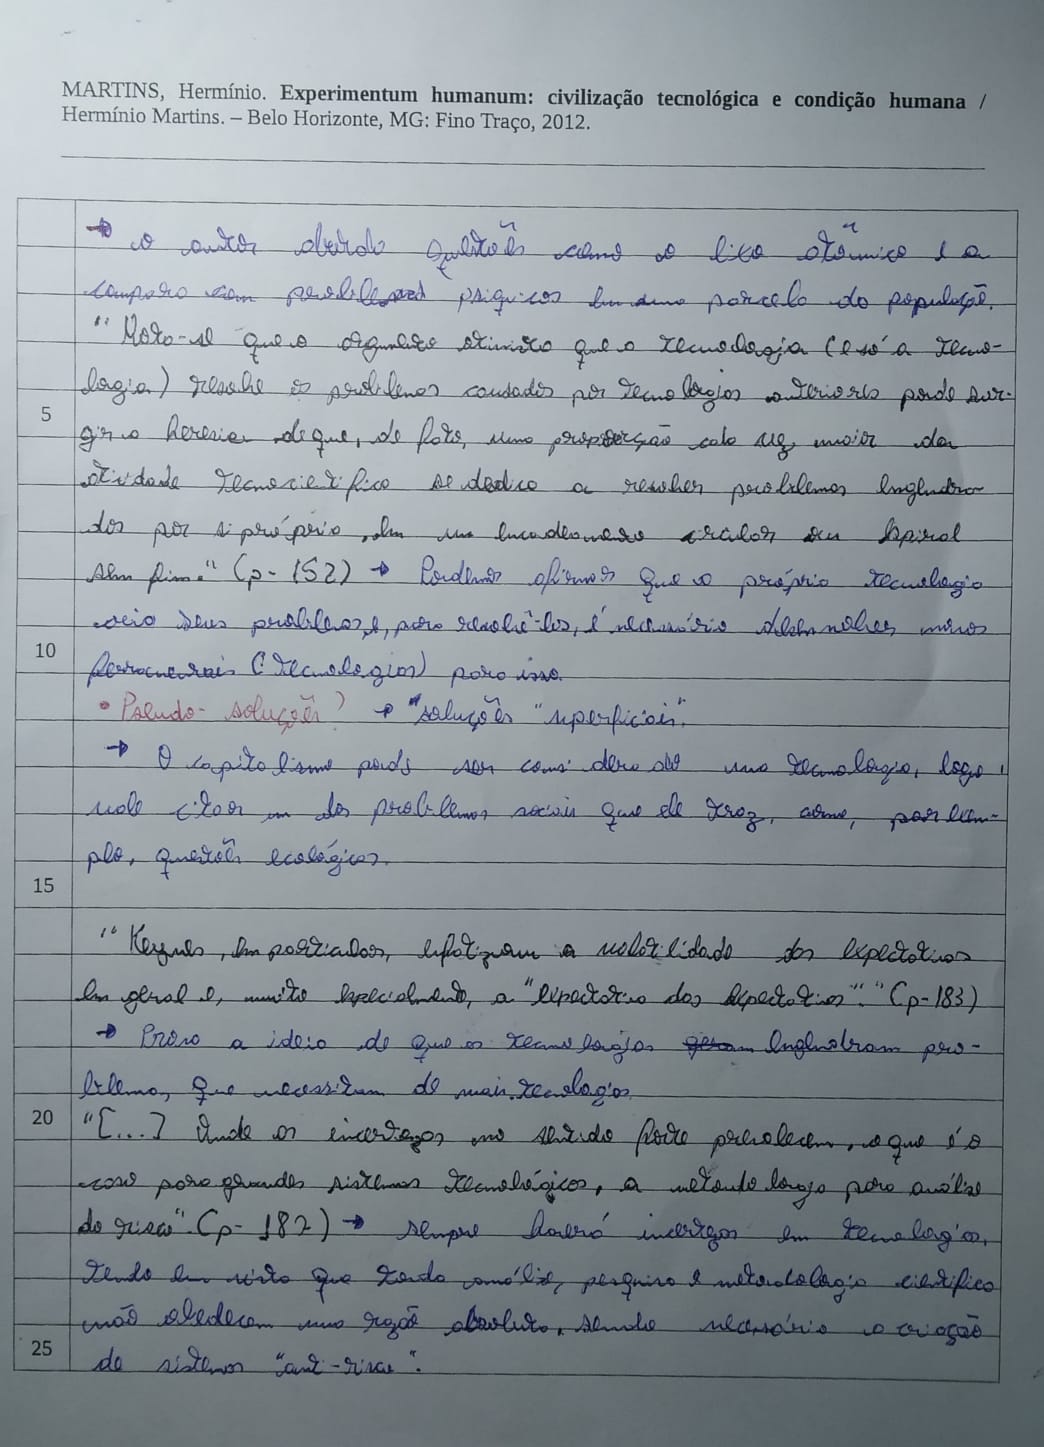 MARTINS, Hermínio. Experimentum humanum: civilização tecnológica e condição humana /
Hermínio Martins. – Belo Horizonte, MG: Fino Traço, 2012.
→ o autor aborda questões como o lixo atômico e a
compara com problemas psíquicos em uma parcela da população.
"Nota-se que o argumento otimista que a tecnologia (e só a tecno-
5 logia) resolve os problemas causados por tecnologias anteriores pode sur-
gir a heresia de que, de fato, uma proporção cada vez maior da
atividade tecnocientífica se dedica a resolver problemas engendra-
dos por si próprio, em um encadeamento circular ou espiral
sem fim." (p-152) → Podemos afirmar que a própria tecnologia
10 cria seus problemas e, para resolvê-los, é necessário desenvolver novas
ferramentais (tecnologias) para isso.
• Pseudo-soluções → "soluções "superficiais".
→ O capitalismo pode ser considerado uma tecnologia, logo,
vale citar um dos problemas sociais que ele traz, como, por exem-
15 plo, questões ecológicas.
"Keynes, em particular, enfatizou a volatilidade das expectativas
em geral e, muito especialmente, a "expectativa das expectativas"." (p-183)
→ Prova a ideia de que as tecnologias engendram pro-
blemas, que necessitam de mais tecnologias.
20 "[...] Onde as incertezas no sentido forte prevalecem, o que é o
caso para grandes sistemas tecnológicos, a metodologia para análise
de risco". (p-182) → sempre haverá incertezas em tecnologias,
tendo em vista que toda análise, pesquisa e metodologia científica
não obedecem uma razão absoluta, sendo necessário a criação
25 de sistemas "anti-risco".